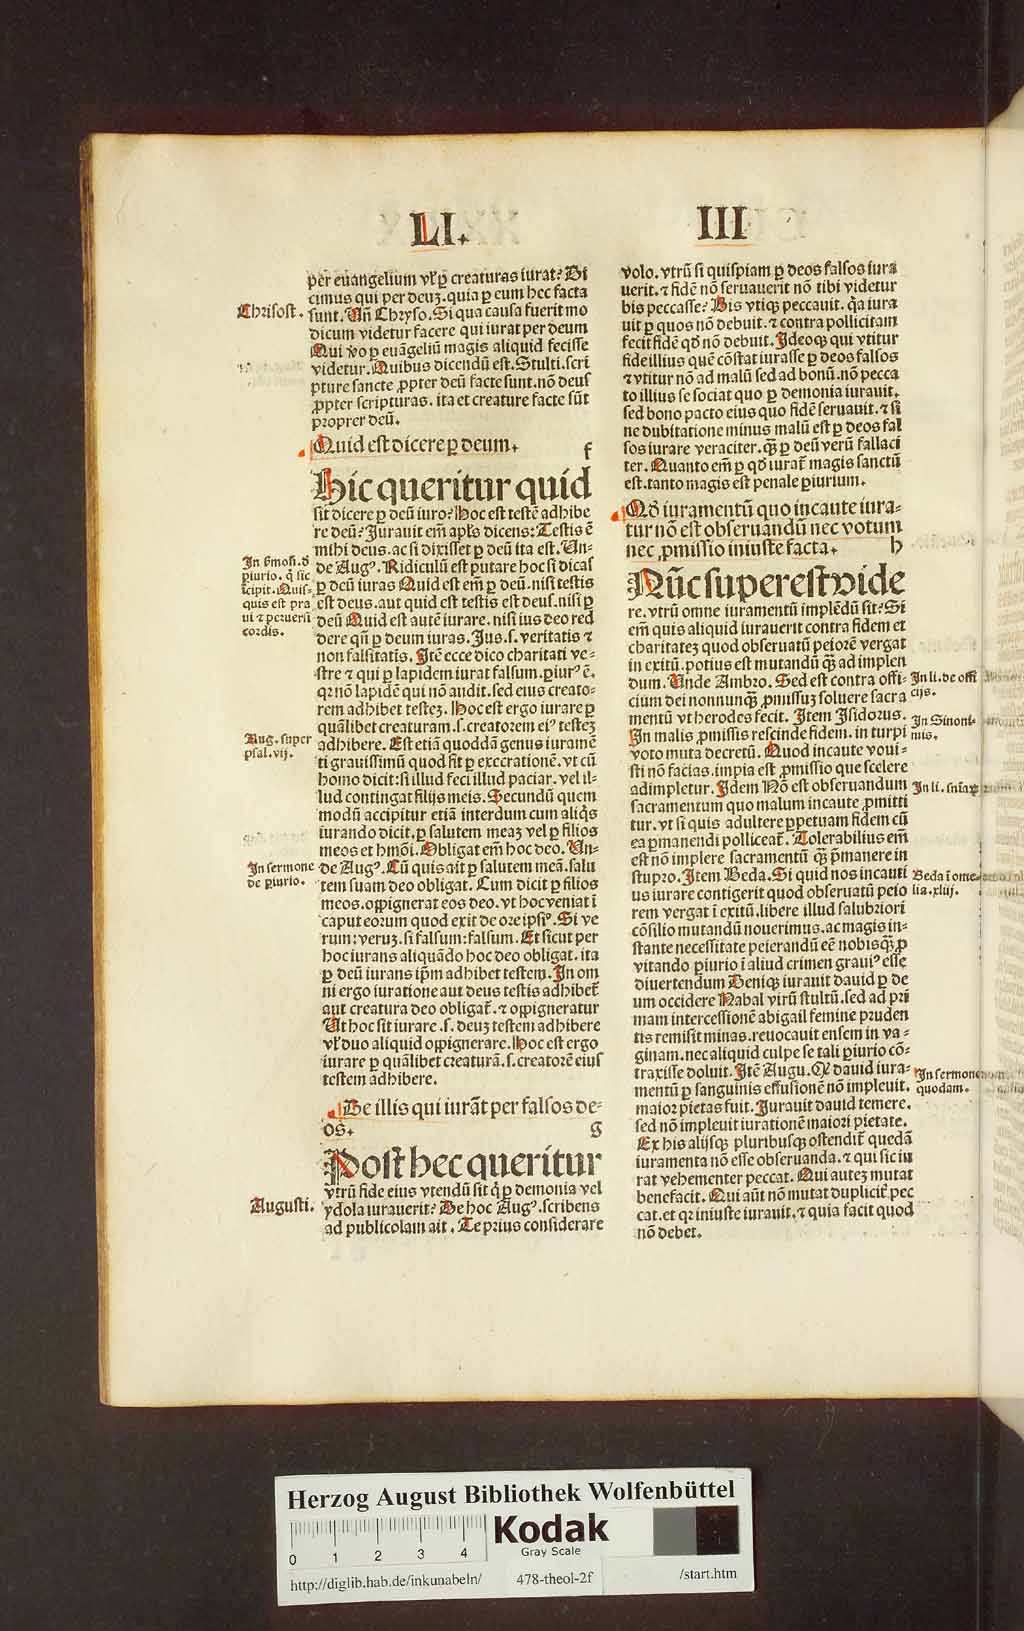 LI.
III
per euangelium vl' ꝑ creaturas iurat? Di
cimus qui per deuꝫ. quia ꝑ eum hec facta
sunt. Uñ Chryso. Si qua causa fuerit mo
dicum videtur facere qui iurat per deum
Qui v̆o ꝑ euãgeliũ magis aliquid fecisse
videtur. Quibus dicendũ est. Stulti. scri
pture sancte ꝓpter deũ facte sunt. nõ deus
ꝓpter scripturas. ita et creature facte sũt
proprer deũ.
Quid est dicere ꝑ deum. f
Hic queritur quid
sit dicere ꝑ deũ iuro? Hoc est testẽ adhibe
re deũ? Jurauit em̃ apl's dicens: Testis ẽ
mihi deus. ac si dixisset ꝑ deũ ita est. Un-
de Augꝰ. Ridiculũ est putare hoc si dicas
ꝑ deũ iuras Quid est em̃ ꝑ deũ. nisi testis
est deus. aut quid est testis est deus. nisi ꝑ
deũ Quid est autẽ iurare. nisi ius deo red
dere qñ ꝑ deum iuras. Jus .s. veritatis ⁊
non falsitatis. Itẽ ecce dico charitati ve-
stre ⁊ qui ꝑ lapidem iurat falsum. ꝑiurꝰ ẽ.
qꝛ nõ lapidẽ qui nõ audit. sed eius creato-
rem adhibet testeꝫ. Hoc est ergo iurare ꝑ
quãlibet creaturam .s. creatorem eiꝰ testeꝫ
adhibere. Est etiã quoddã genus iuramẽ
ti grauissimũ quod fit ꝑ execrationẽ. vt cũ
homo dicit: si illud feci illud paciar. vel il-
lud contingat filijs meis. Secundũ quem
modũ accipitur etiã interdum cum aliq̃s
iurando dicit. ꝑ salutem meaꝫ vel ꝑ filios
meos et hmõi. Obligat em̃ hoc deo. Un-
de Augꝰ. Cũ quis ait ꝑ salutem meã. salu
tem suam deo obligat. Cum dicit ꝑ filios
meos. oppignerat eos deo. vt hoc veniat ĩ
caput eorum quod exit de ore ipsiꝰ. Si ve
rum: veruꝫ. si falsum: falsum. Et sicut per
hoc iurans aliquãdo hoc deo obligat. ita
ꝑ deũ iurans ip̃m adhibet testem. In om
ni ergo iuratione aut deus testis adhibet̃
aut creatura deo obligat̃. ⁊ oppigneratur
Ut hoc sit iurare .s. deuꝫ testem adhibere
vl' duo aliquid oppignerare. Hoc est ergo
iurare ꝑ quãlibet creaturã .s. creatorẽ eius
testem adhibere.
De illis qui iurãt per falsos de-
os. g
Post hec queritur
vtrũ fide eius vtendũ sit q̃ ꝑ demonia vel
ydola iurauerit? De hoc Augꝰ. scribens
ad publicolam ait. Te prius considerare
volo. vtrũ si quispiam ꝑ deos falsos iura
uerit. ⁊ fidẽ nõ seruauerit nõ tibi videtur
bis peccasse? Bis vtiqꝫ peccauit. q̃a iura
uit ꝑ quos nõ debuit. ⁊ contra pollicitam
fecit fidẽ qd̃ nõ debuit. Ideoqꝫ qui vtitur
fide illius quẽ cõstat iurasse ꝑ deos falsos
⁊ vtitur nõ ad malũ sed ad bonũ. nõ pecca
to illius se sociat quo ꝑ demonia iurauit.
sed bono pacto eius quo fidẽ seruauit. ⁊ si
ne dubitatione minus malũ est ꝑ deos fal
sos iurare veraciter. qꝫ̃ ꝑ deũ verũ fallaci
ter. Quanto em̃ ꝑ qd̃ iurat̃ magis sanctũ
est. tanto magis est penale ꝑiurium.
Qd̃ iuramentũ quo incaute iura-
tur nõ est obseruandũ nec votum
nec ꝓmissio iniuste facta. h
Nũc superest vide
re. vtrũ omne iuramentũ implẽdũ sit? Si
em̃ quis aliquid iurauerit contra fidem et
charitateꝫ quod obseruatũ peiorẽ vergat
in exitũ. potius est mutandũ qꝫ̃ ad implen
dum. Unde Ambro. Sed est contra offi-
cium dei nonnunqꝫ̃ ꝓmissuꝫ soluere sacra
mentũ vt herodes fecit. Item Isidorus.
In malis ꝓmissis rescinde fidem. in turpi
voto muta decretũ. Quod incaute voui-
sti nõ facias. impia est ꝓmissio que scelere
adimpletur. Idem Nõ est obseruandum
sacramentum quo malum incaute ꝓmitti
tur. vt si quis adultere ꝑpetuam fidem cũ
ea ꝑmanendi polliceat̃. Tolerabilius em̃
est nõ implere sacramentũ qꝫ̃ ꝑmanere in
stupro. Item Beda. Si quid nos incauti
us iurare contigerit quod obseruatũ peio
rem vergat ĩ exitũ. libere illud salubriori
cõsilio mutandũ nouerimus. ac magis in-
stante necessitate peierandũ eẽ nobis qꝫ̃ ꝓ
vitando ꝑiurio ĩ aliud crimen grauiꝰ esse
diuertendum Deniqꝫ iurauit dauid ꝑ de
um occidere Nabal virũ stultũ. sed ad pri
mam intercessionẽ abigail femine pruden
tis remisit minas. reuocauit ensem in va-
ginam. nec aliquid culpe se tali ꝑiurio cõ-
traxisse doluit. Itẽ Augu. Qd̃ dauid iura-
mentũ ꝑ sanguinis effusionẽ nõ impleuit.
maior pietas fuit. Jurauit dauid temere.
sed nõ impleuit iurationẽ maiori pietate.
Ex his alijsqꝫ pluribusqꝫ ostendit̃ quedã
iuramenta nõ esse obseruanda. ⁊ qui sic iu
rat vehementer peccat. Qui auteꝫ mutat
benefacit. Qui aũt nõ mutat dupliciť pec
cat. et qꝛ iniuste iurauit. ⁊ quia facit quod
nõ debet.
Chrisost.
In s̃mõi. ď
ꝑiurio. q̃ sic
ĩcipit. Quis-
quis est pra
ui ⁊ ꝑuersi
cordis.
Aug. super
psal. vij.
In sermone
de ꝑiurio.
Augusti.
In li. de offi
cijs.
In Sinoni-
mis.
In li. snĩaꝝ
Beda ĩ ome-
lia. xliij.
In sermone
quodam.
Herzog August Bibliothek Wolfenbüttel
0 1 2 3 4
Kodak
Gray Scale
http://diglib.hab.de/inkunabeln/
478-theol-2f
/start.htm